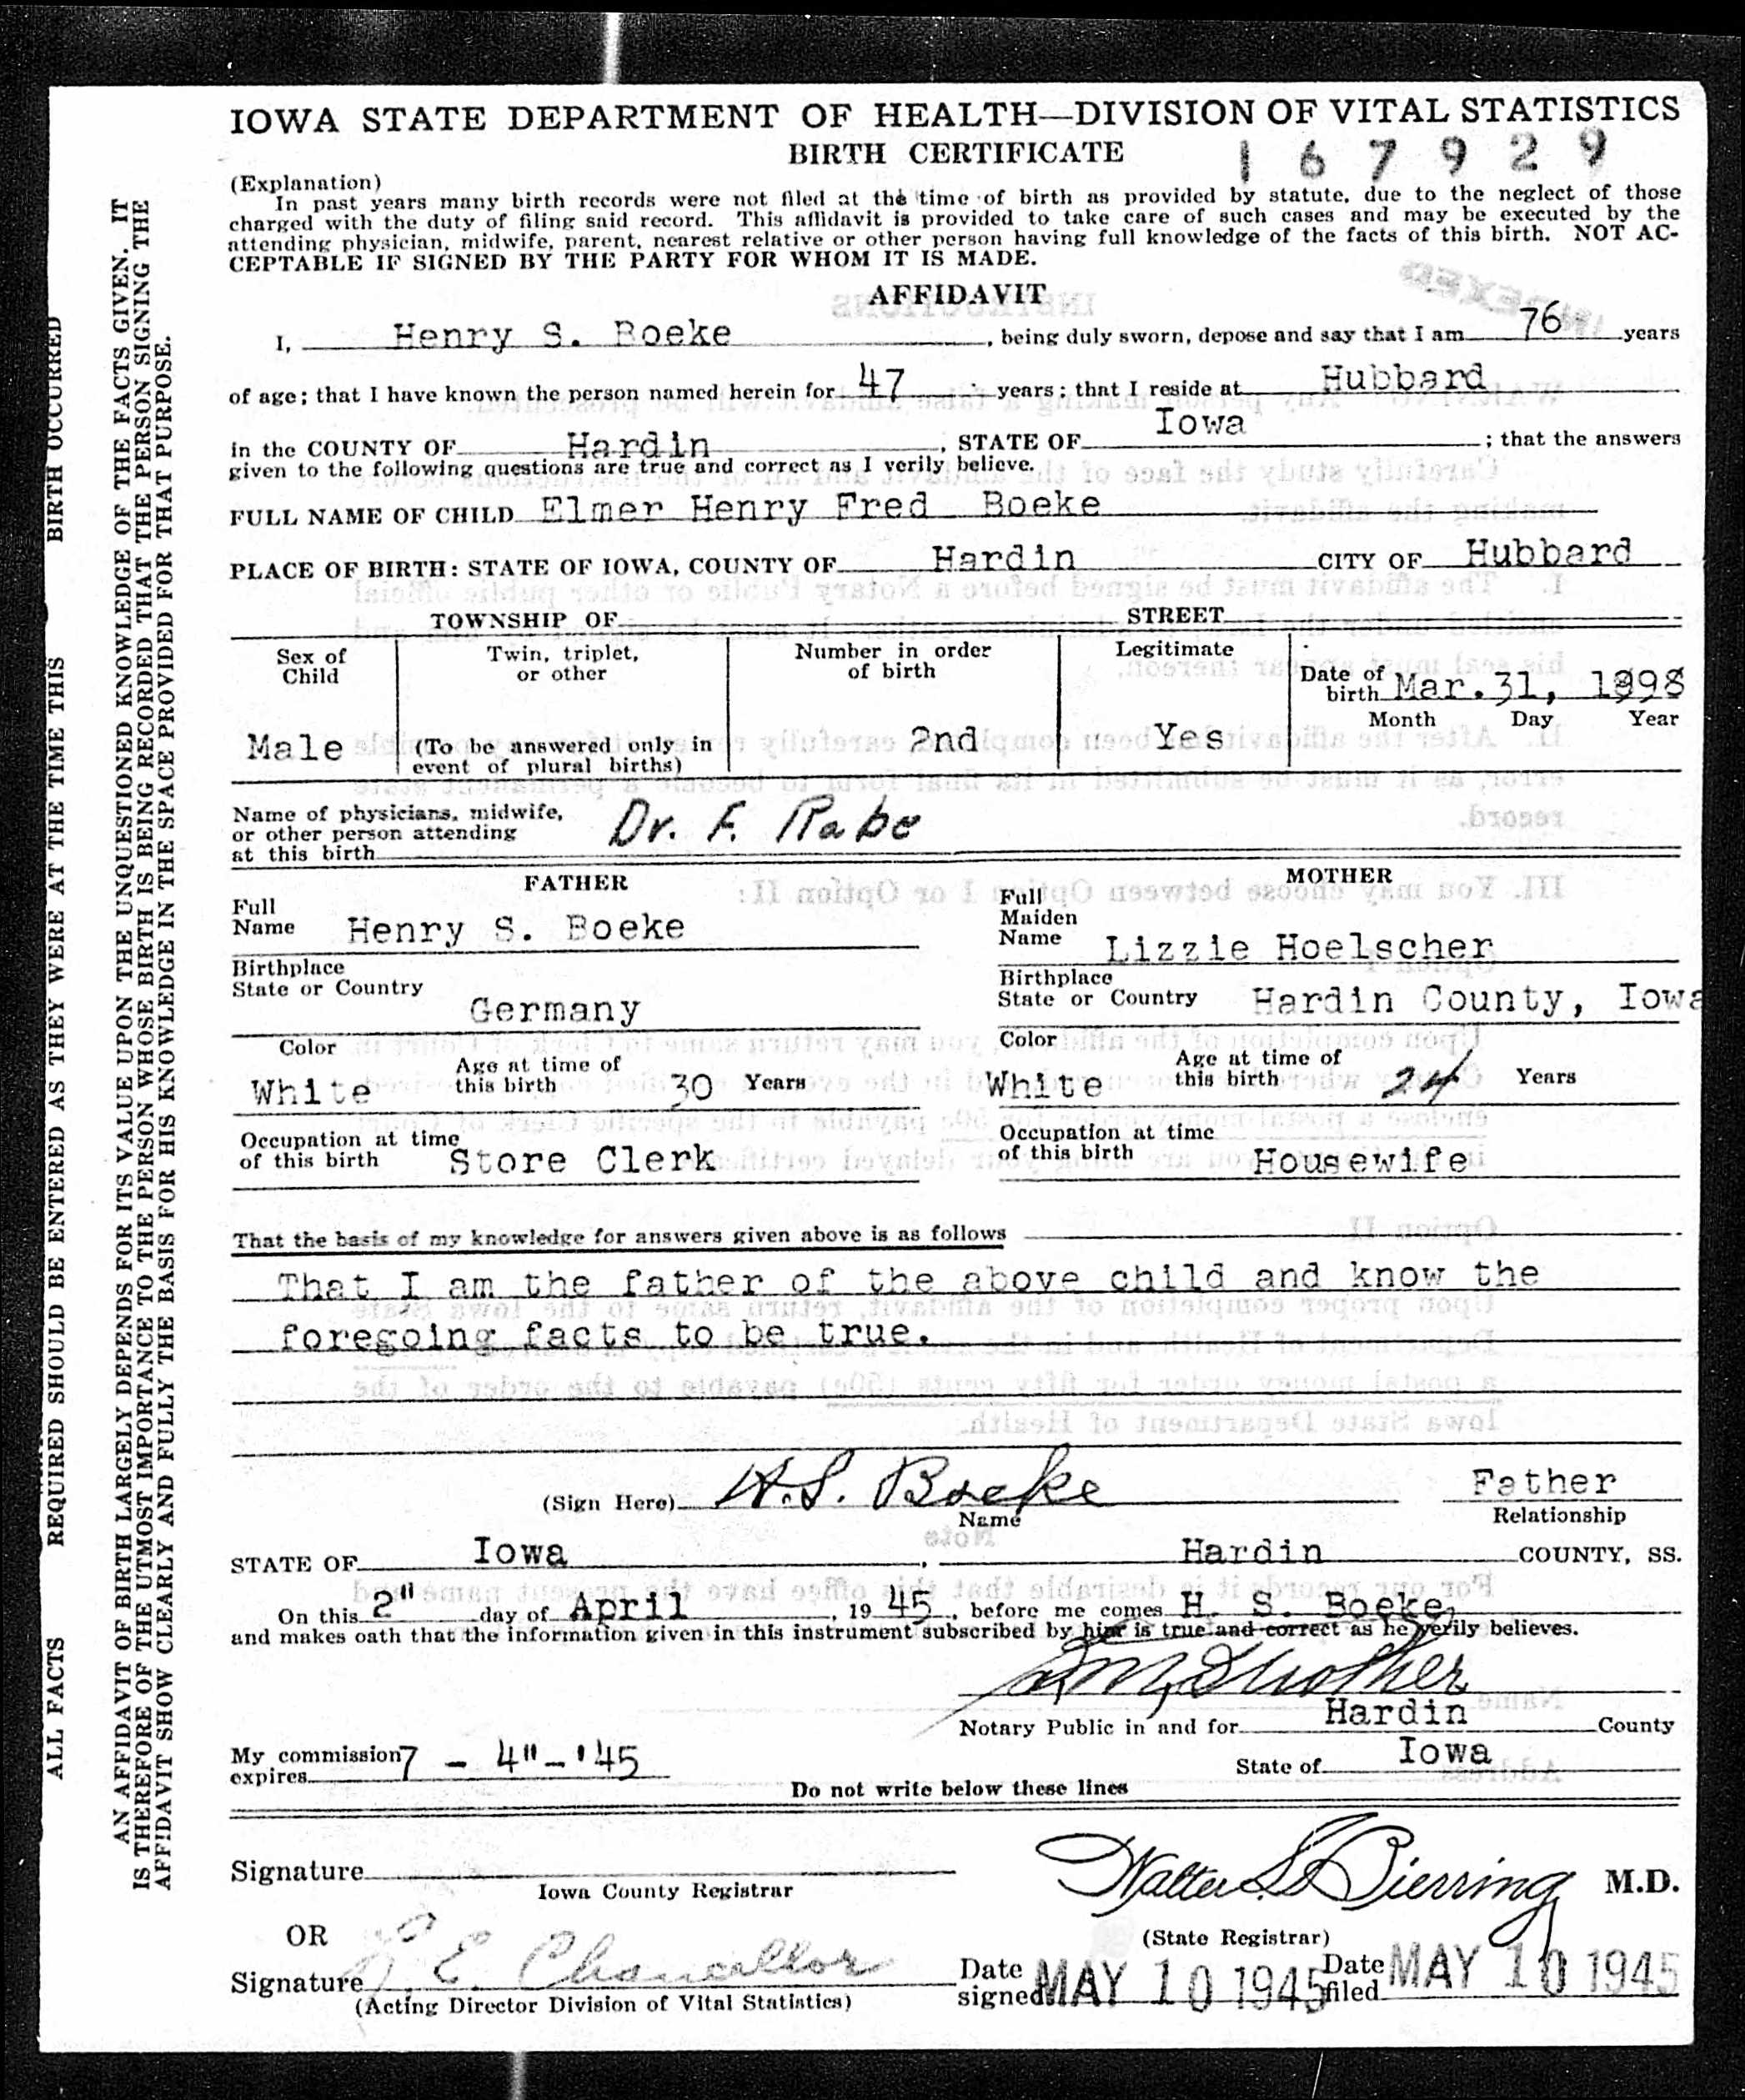 IOWA STATE DEPARTMENT OF HEALTH—DIVISION OF VITAL STATISTICS
BIRTH CERTIFICATE 167929
(Explanation)
In past years many birth records were not filed at the time of birth as provided by statute, due to the neglect of those
charged with the duty of filing said record. This affidavit is provided to take care of such cases and may be executed by the
attending physician, midwife, parent, nearest relative or other person having full knowledge of the facts of this birth. NOT AC-
CEPTABLE IF SIGNED BY THE PARTY FOR WHOM IT IS MADE.
INDEXED
AFFIDAVIT
I, Henry S. Boeke, being duly sworn, depose and say that I am 76 years
of age; that I have known the person named herein for 47 years; that I reside at Hubbard
in the COUNTY OF Hardin, STATE OF Iowa; that the answers
given to the following questions are true and correct as I verily believe.
FULL NAME OF CHILD Elmer Henry Fred Boeke
PLACE OF BIRTH: STATE OF IOWA, COUNTY OF Hardin CITY OF Hubbard
TOWNSHIP OF STREET
Sex of Child Male
Twin, triplet, or other (To be answered only in event of plural births)
Number in order of birth 2nd
Legitimate Yes
Date of birth Mar. 31, 1898
Month Day Year
Name of physicians, midwife,
or other person attending
at this birth Dr. F. Rabe
FATHER
Full Name Henry S. Boeke
Birthplace State or Country Germany
Color White Age at time of this birth 30 Years
Occupation at time of this birth Store Clerk
MOTHER
Full Maiden Name Lizzie Hoelscher
Birthplace State or Country Hardin County, Iowa
Color White Age at time of this birth 24 Years
Occupation at time of this birth Housewife
That the basis of my knowledge for answers given above is as follows
That I am the father of the above child and know the
foregoing facts to be true.
(Sign Here) H.S. Boeke Father
Name Relationship
STATE OF Iowa, Hardin COUNTY, SS.
On this 2" day of April, 1945, before me comes H. S. Boeke,
and makes oath that the information given in this instrument subscribed by him is true and correct as he verily believes.
Notary Public in and for Hardin County
My commission expires 7 - 4" - '45 State of Iowa
Do not write below these lines
Signature
Iowa County Registrar
Walter L. Bierring M.D.
(State Registrar)
OR
Signature E. Chancellor
(Acting Director Division of Vital Statistics)
Date signed MAY 10 1945 Date filed MAY 10 1945
ALL FACTS REQUIRED SHOULD BE ENTERED AS THEY WERE AT THE TIME THIS BIRTH OCCURRED
AN AFFIDAVIT OF BIRTH LARGELY DEPENDS FOR ITS VALUE UPON THE UNQUESTIONED KNOWLEDGE OF THE FACTS GIVEN. IT
IS THEREFORE OF THE UTMOST IMPORTANCE TO THE PERSON WHOSE BIRTH IS BEING RECORDED THAT THE PERSON SIGNING THE
AFFIDAVIT SHOW CLEARLY AND FULLY THE BASIS FOR HIS KNOWLEDGE IN THE SPACE PROVIDED FOR THAT PURPOSE.